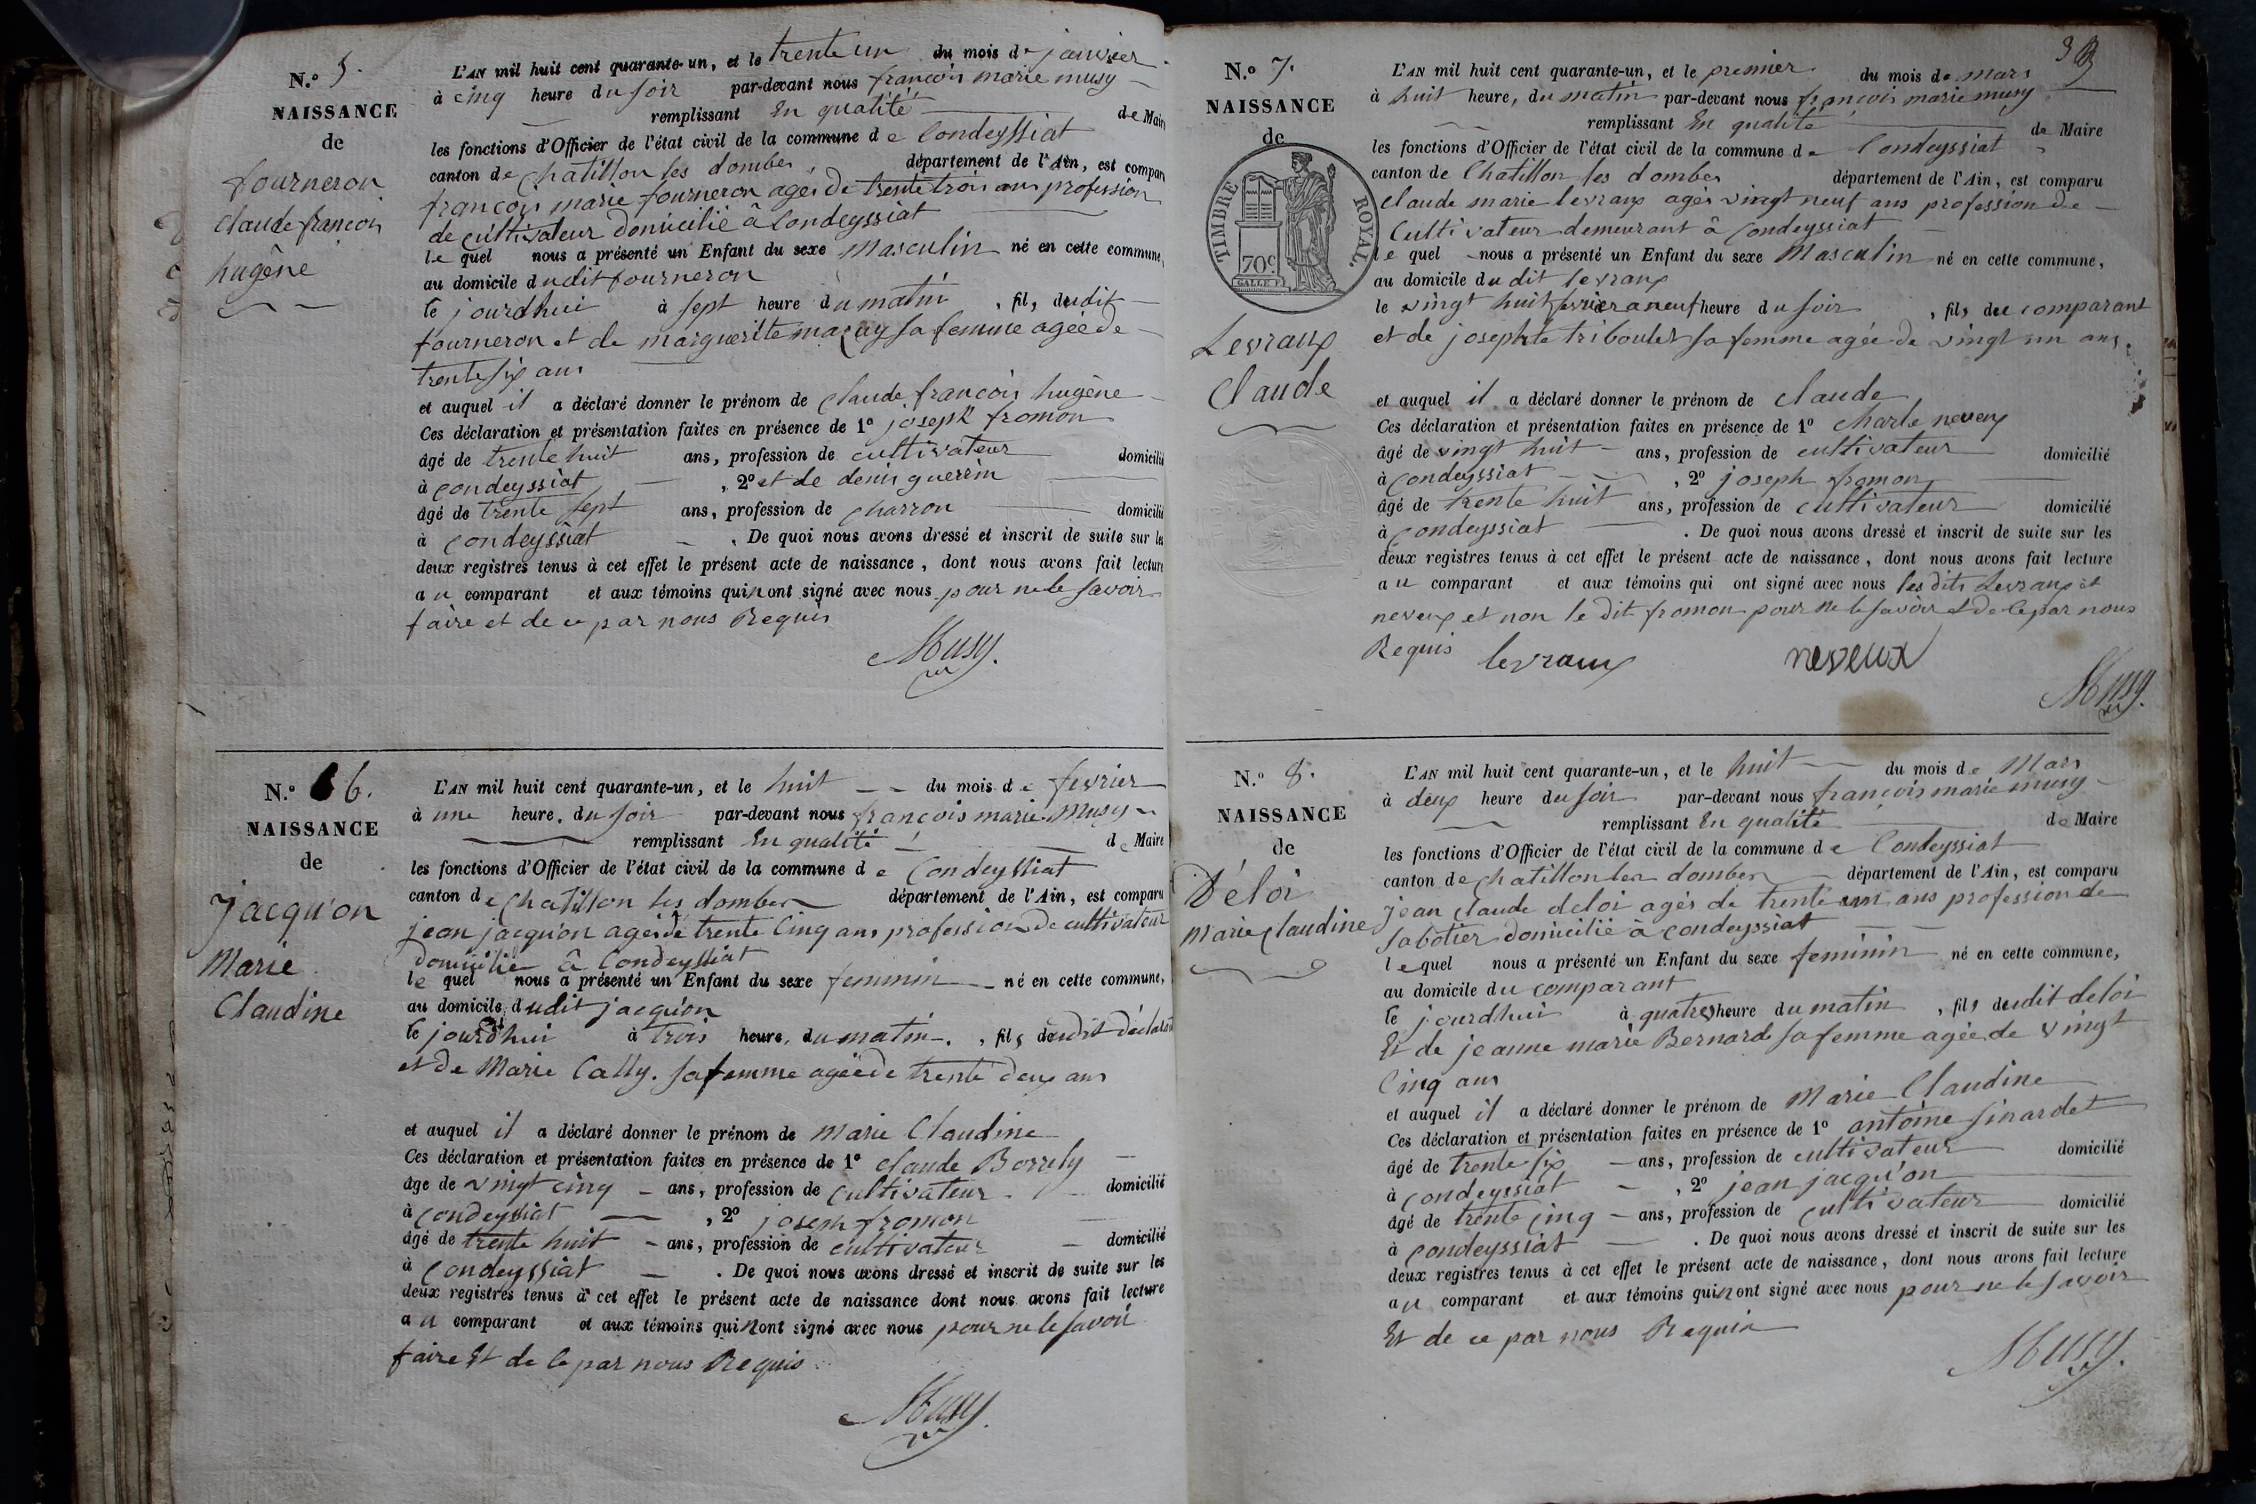 N.º 5.
NAISSANCE
de
fourneron
Claude françois
hugêne
L'AN mil huit cent quarante-un, et le trente un du mois de janvier
à cinq heure du soir par-devant nous françois marie musy
remplissant En qualité de Maire
les fonctions d'Officier de l'état civil de la commune de Condeyssiat
canton de chatillon les dombes département de l'Ain, est comparu
françois marie fourneron agés de trente trois ans profession
de cultivateur domicilié à Condeyssiat
le quel nous a présenté un Enfant du sexe Masculin né en cette commune,
au domicile dudit fourneron
le jourdhui à sept heure du matin, fils dudit
fourneron et de marguerite mazuy sa femme agée de
trente six ans
et auquel il a déclaré donner le prénom de claude françois hugêne
Ces déclaration et présentation faites en présence de 1º joseph fromon
âgé de trente huit ans, profession de cultivateur domicilié
à condeyssiat, 2º et de denis guerrin
âgé de trente sept ans, profession de charron domicilié
à condeyssiat. De quoi nous avons dressé et inscrit de suite sur les
deux registres tenus à cet effet le présent acte de naissance, dont nous avons fait lecture
au comparant et aux témoins qui nont signé avec nous pour ne le savoir
faire et de ce par nous Requis
Musy.
N.º 6.
NAISSANCE
de
Jacqu'on
Marie
Claudine
L'AN mil huit cent quarante-un, et le huit du mois de fevrier
à une heure, du soir par-devant nous françois marie Musy
remplissant En qualité de Maire
les fonctions d'Officier de l'état civil de la commune de Condeyssiat
canton de Chatillon les dombes département de l'Ain, est comparu
jean jacqu'on agés de trente Cinq ans profession de cultivateur
domicilié à Condeyssiat
le quel nous a présenté un Enfant du sexe feminin né en cette commune,
au domicile dudit jacqu'on
le jourd'hui à trois heure, du matin, fils dudit déclarant
et de Marie Cally. sa femme agée de trente deux ans
et auquel il a déclaré donner le prénom de Marie Claudine
Ces déclaration et présentation faites en présence de 1º claude Borrely
âge de vingt cinq ans, profession de Cultivateur domicilié
à Condeyssiat, 2º joseph fromon
âgé de trente huit ans, profession de cultivateur domicilié
à Condeyssiat. De quoi nous avons dressé et inscrit de suite sur les
deux registres tenus à cet effet le présent acte de naissance dont nous avons fait lecture
au comparant et aux témoins qui nont signé avec nous pour ne le savoir
faire Et de ce par nous Requis
Musy.
N.º 7.
NAISSANCE
de
TIMBRE ROYAL.
70c
Levraux
Claude
L'AN mil huit cent quarante-un, et le premier du mois de mars
à huit heure, du matin par-devant nous françois marie musy
remplissant En qualité de Maire
les fonctions d'Officier de l'état civil de la commune de Condeyssiat
canton de Chatillon les dombes département de l'Ain, est comparu
Claude marie levraux agés vingt neuf ans profession de
Cultivateur demeurant à Condeyssiat
le quel nous a présenté un Enfant du sexe Masculin né en cette commune,
au domicile du dit levraux
le vingt huit fevrier a neuf heure du soir, fils du comparant
et de josephte triboulet sa femme agée de vingt un ans.
et auquel il a déclaré donner le prénom de claude
Ces déclaration et présentation faites en présence de 1º charle neveux
âgé de vingt huit ans, profession de cultivateur domicilié
à condeyssiat, 2º joseph fromon
âgé de trente huit ans, profession de cultivateur domicilié
à condeyssiat. De quoi nous avons dressé et inscrit de suite sur les
deux registres tenus à cet effet le présent acte de naissance, dont nous avons fait lecture
au comparant et aux témoins qui ont signé avec nous les dits Levraux et
neveux et non le dit fromon pour ne le savoir et de ce par nous
Requis
levraux neveux
Musy.
N.º 8.
NAISSANCE
de
Déloi
Marie Claudine
L'AN mil huit cent quarante-un, et le huit du mois de Mars
à deux heure du soir par-devant nous françois marie musy
remplissant En qualité de Maire
les fonctions d'Officier de l'état civil de la commune de Condeyssiat
canton de chatillon les dombes département de l'Ain, est comparu
jean claude deloi agés de trente un ans profession de
sabotier domicilié à condeyssiat
lequel nous a présenté un Enfant du sexe feminin né en cette commune,
au domicile du comparant
le jourdhui à quatre heure du matin, fils dudit deloi
Et de jeanne marie Bernard sa femme agée de vingt
Cinq ans
et auquel il a déclaré donner le prénom de Marie Claudine
Ces déclaration et présentation faites en présence de 1º antoine sinardet
âgé de trente six ans, profession de cultivateur domicilié
à condeyssiat, 2º jean jacqu'on
âgé de trente cinq ans, profession de cultivateur domicilié
à condeyssiat. De quoi nous avons dressé et inscrit de suite sur les
deux registres tenus à cet effet le présent acte de naissance, dont nous avons fait lecture
au comparant et aux témoins qui nont signé avec nous pour ne le savoir
Et de ce par nous Requis
Musy.